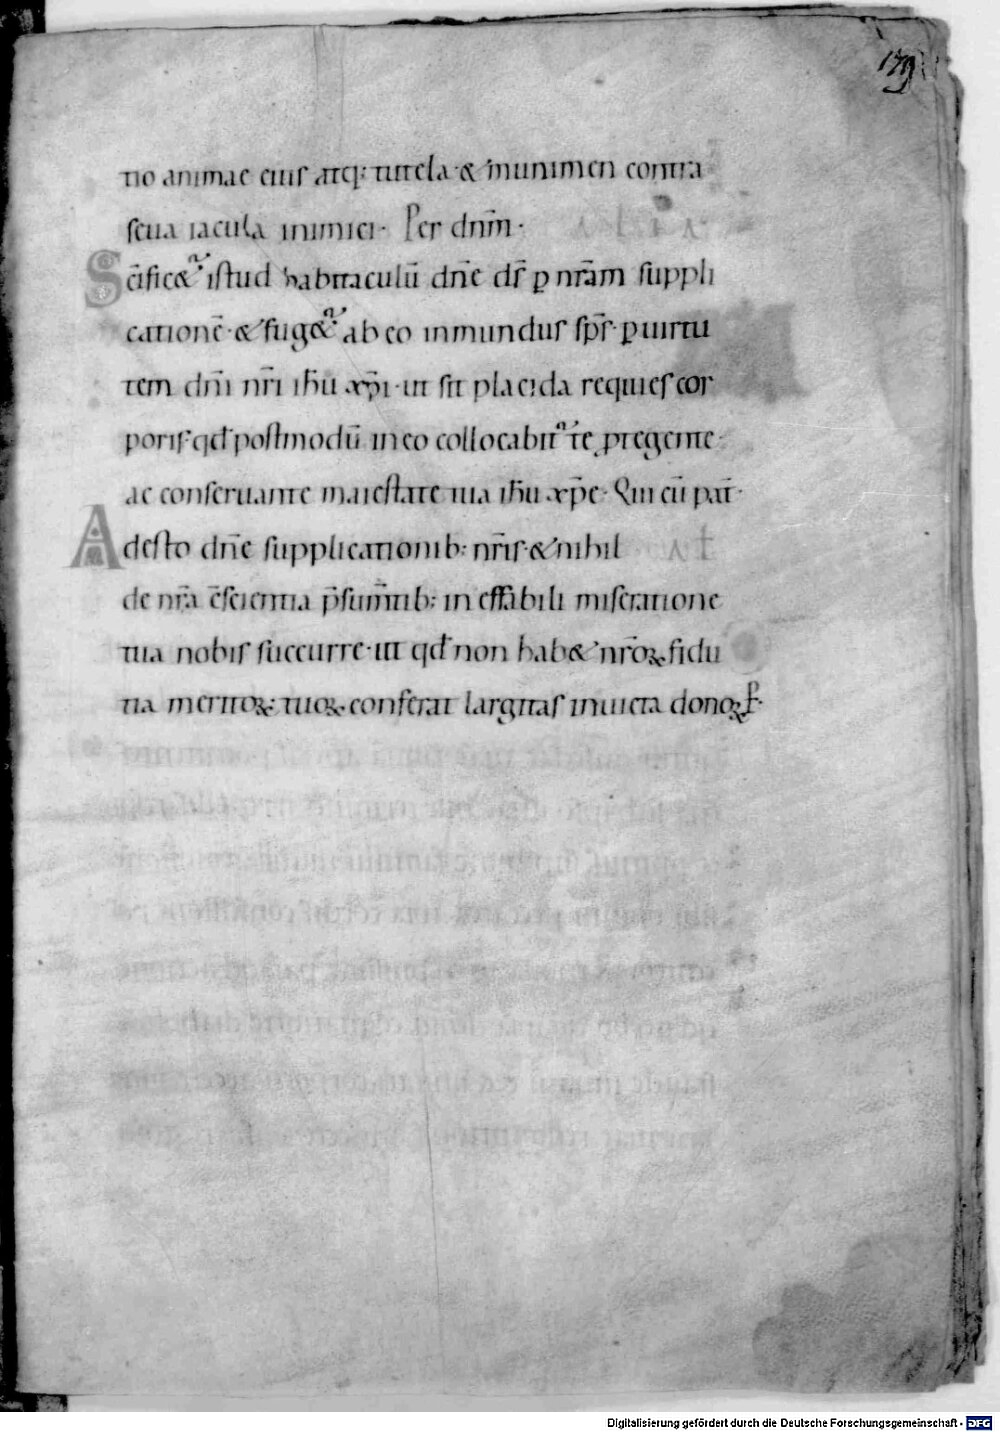 179
tio animae eius atq: tutela · & munimen contra
seua iacula inimici · Per dnm̄ ·
Sc̄ific&ur istud habitaculū dn̄e ds̄ p nr̄am suppli
cationē · & fug&ur ab eo inmundus sps̄ · p uirtu
tem dn̄i nr̄i ih̄u xp̄i · ut sit placida requies cor
poris · qd̄ postmodū in eo collocabit͛ te pregente ·
ac conseruante maiestate tua ih̄u xp̄e · Qui cū pat̄ ·
Adesto dn̄e supplicationib: nr̄is · & nihil
de nr̄a c̄scientia p̄sum̄tib: ineffabili miseratione
tua nobis succurre · ut qd̄ non hab& nr̄oꝝ fidu
tia meritoꝝ · tuoꝝ conferat largitas inuicta donoꝝ P ·
Digitalisierung gefördert durch die Deutsche Forschungsgemeinschaft - DFG